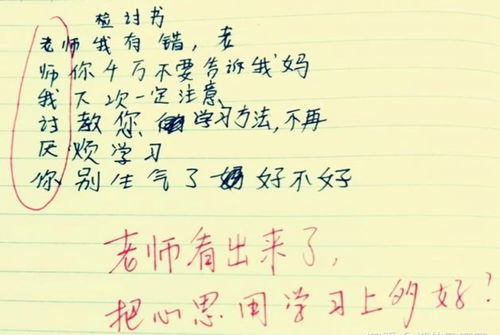 检讨书
老师我有错，老
师你千万不要告诉我妈
我下次一定注意
讨教您学习方法，不再
厌烦学习
你别生气了好不好
老师看出来了，
把心思用学习上多好？